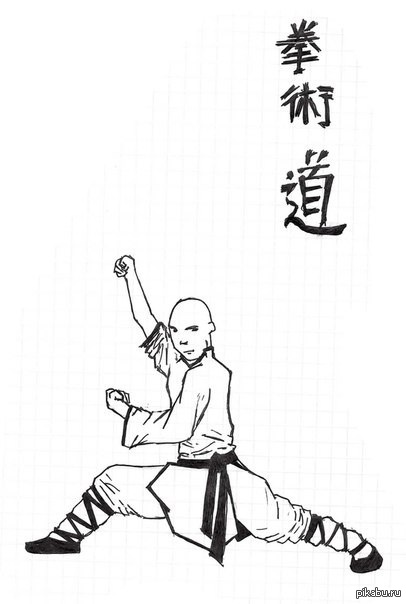 拳
術
道
pikabu.ru